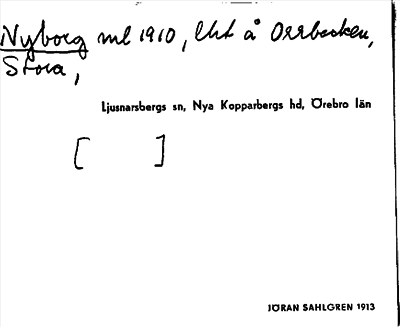 Nyborg ml 1910, lht å Orrbacken,
Stora,
Ljusnarsbergs sn, Nya Kopparbergs hd, Örebro län
[ ]
JÖRAN SAHLGREN 1913